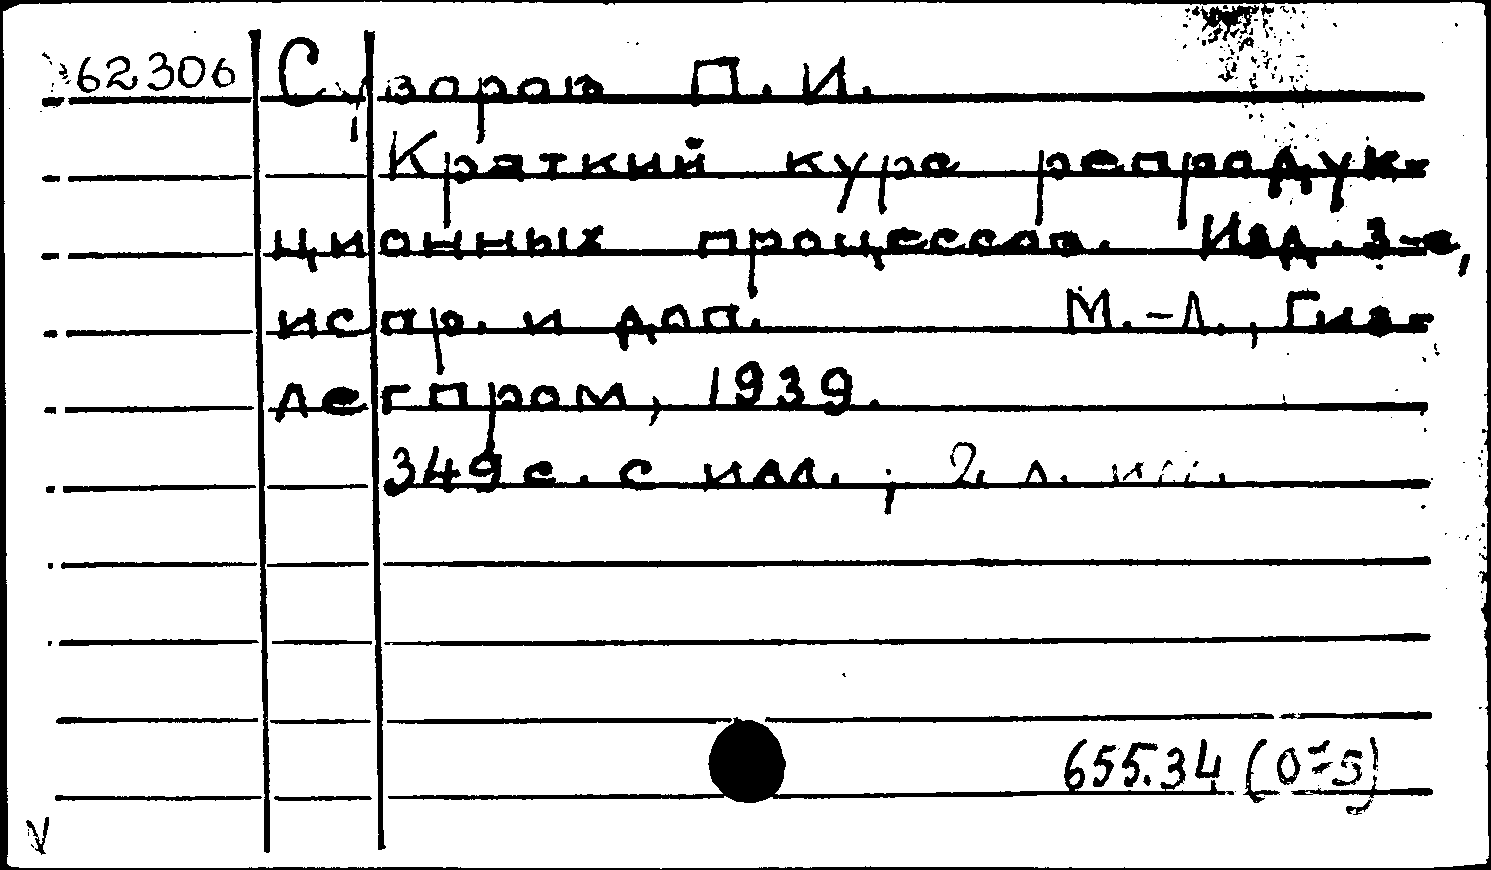 62306 Суворов П. И.
Краткий курс репродук-
ционных процессов. Изд. 3-е,
испр. и доп. М.-Л., Гиз-
легпром, 1939.
349 с. с илл.; 2 л. илл.
655.34 (075)
V